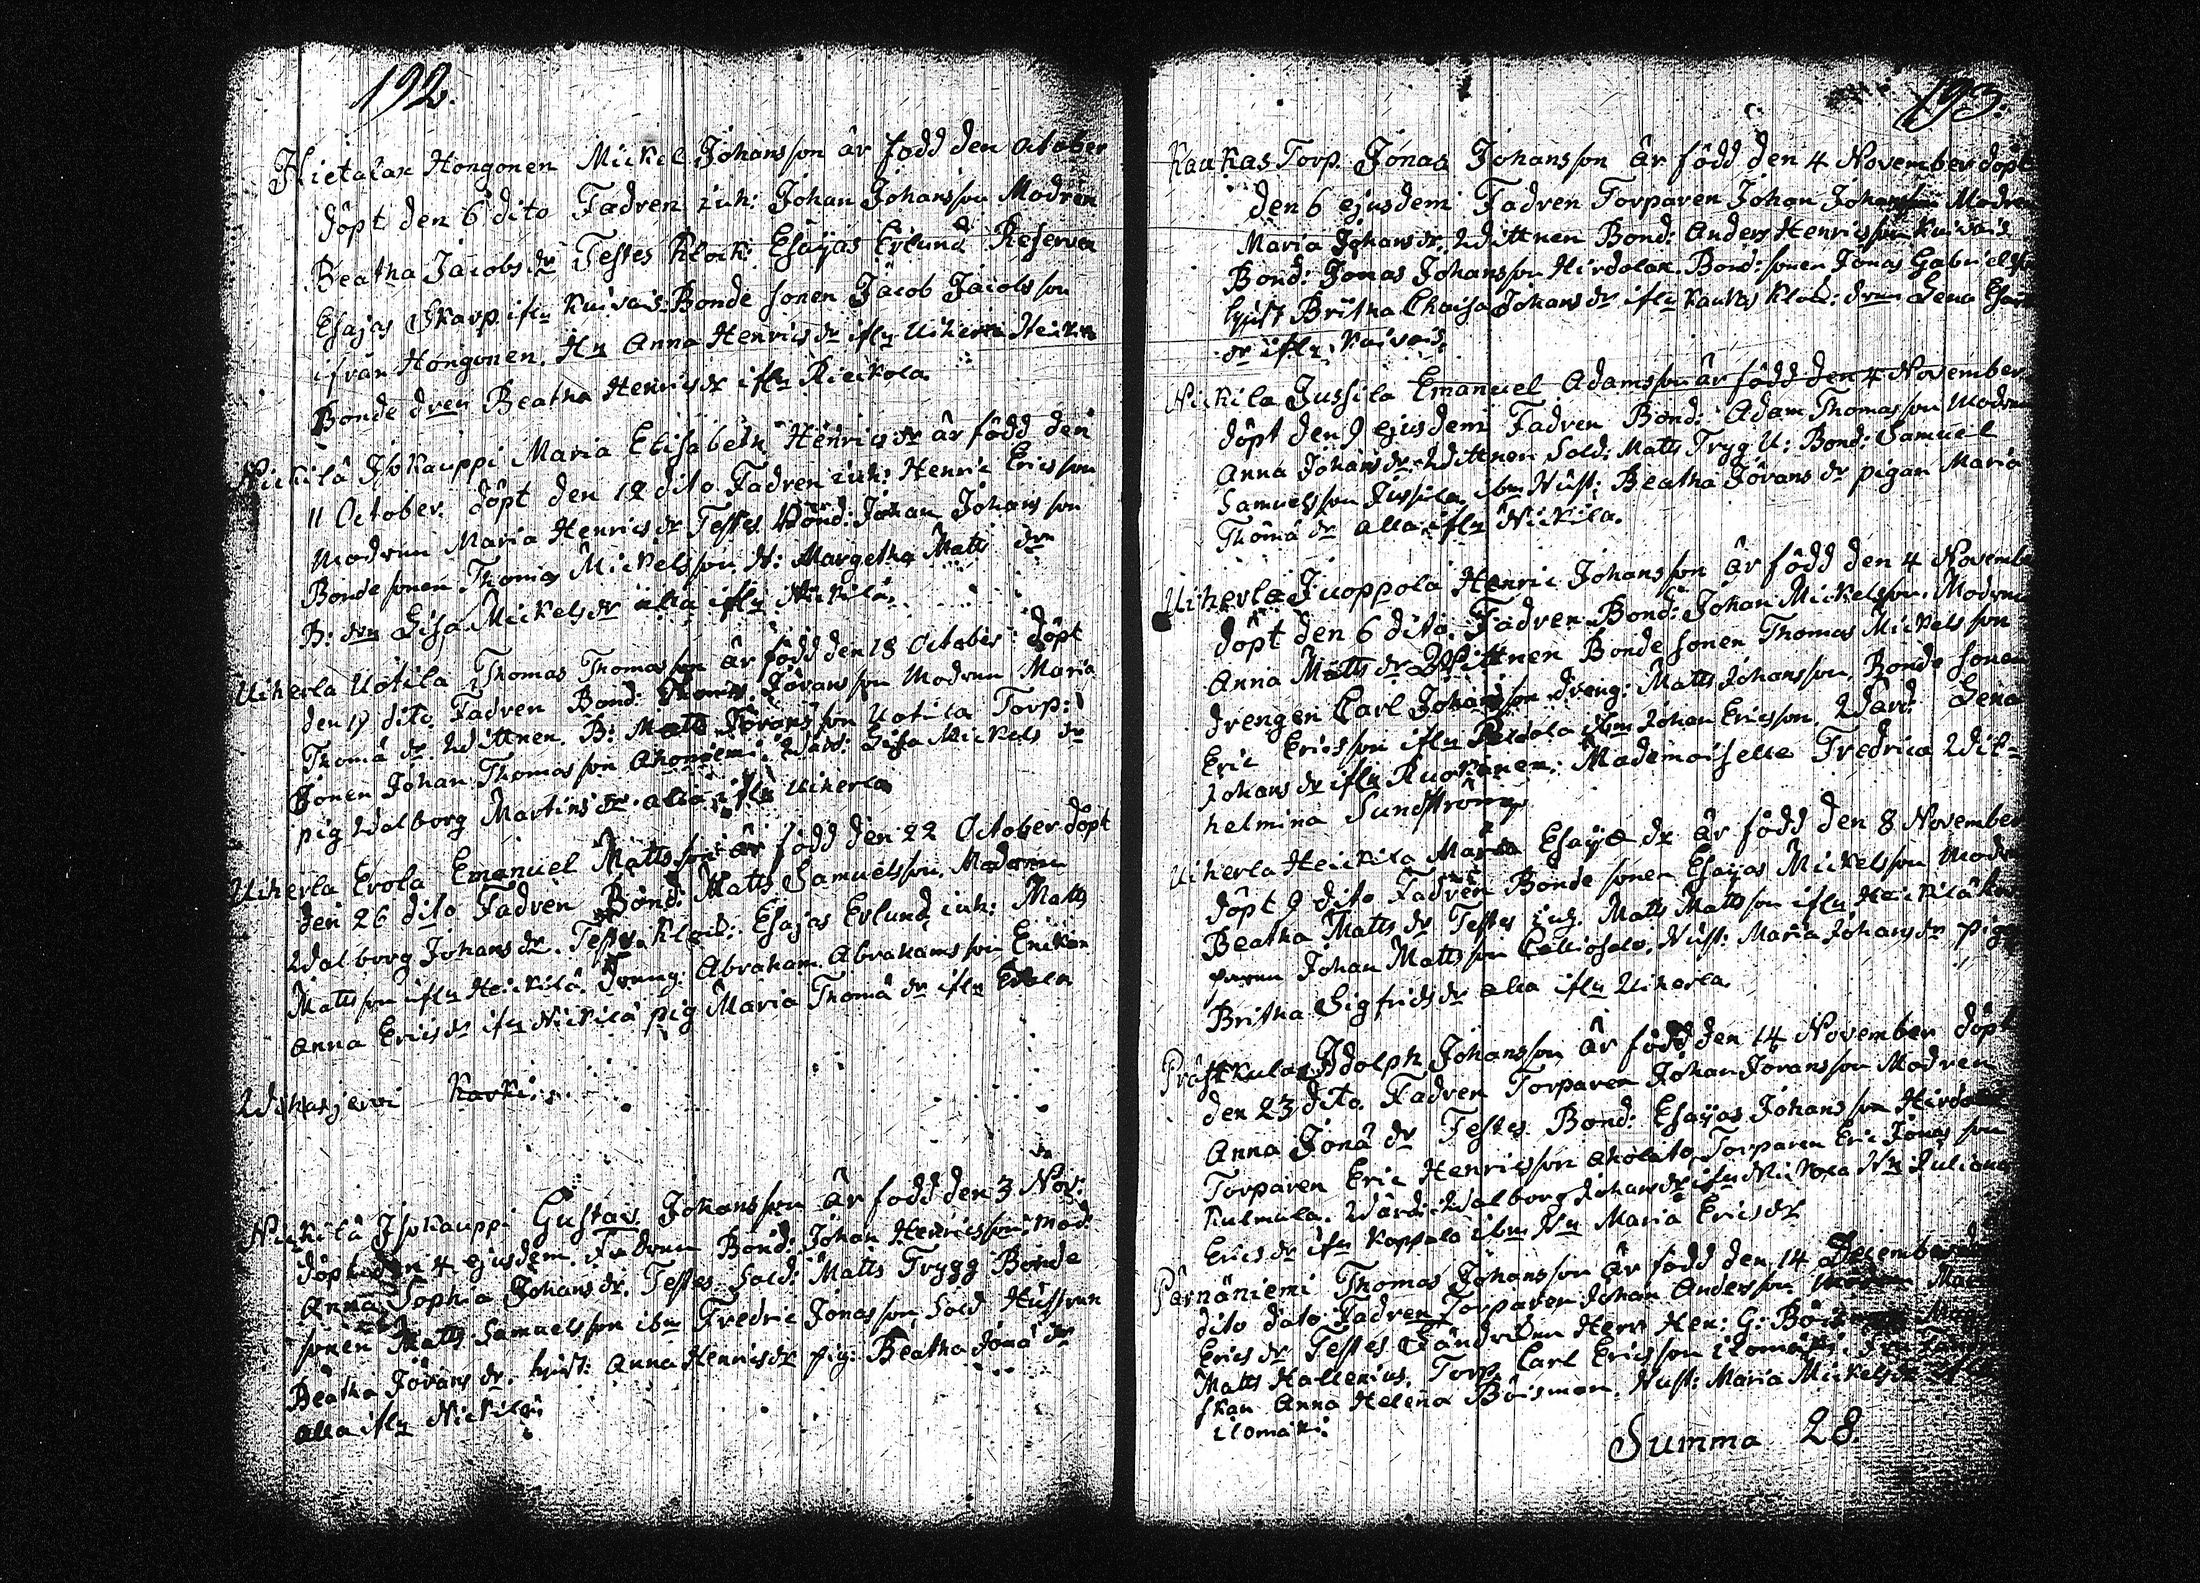 192.
Hietalax Hongonen Mickel Johansson är född den October
döpt den 6 dito Fadren inh: Johan Johansson Modren
Beatha Jacobs dr Testes Klock: Esajas Erlund Reserven
Esajas Skarp ifrn Kuivais: Bonde sonen Jacob Jacobsson
ifrån Hongonen. Hu Anna Henrics dr ifrn Uiherla
Bonde dren Beatha Henrics dr ifrn
Nickilä Isokauppi Maria Elisabeth Henrics dr är född den
11 October. döpt den 12 dito Fadren inh: Henric Ericsson
modren Maria Henrics dr Testes Bond: Johan Johansson
Bonde sonen Thomas Mickelsson. H: Margetha Matts dr
B: drn Lisa Mickels dr alla ifrn Nickilä.
Uiherla Uotila Thomas Thomasson är född den 18 October döpt
den 19 dito Fadren Bond: Thomas Göransson Modren Maria
Thomä dr. Wittnen. B: Matts Göransson Uotila Torp:
sonen Johan Thomasson Ahoniemi. Lisa Mickels dr
pig Walborg Martins dr alla ifrn Uiherla
Uiherla Erola Emanuel Mattsson är född den 22 October döpt
den 26 dito Fadren Bond: Matts Samuelsson. Modren
Walborg Johans dr. Testes Klock: Esajas Erlund inh: Matts
Mattsson ifrn Heickilä. dräng: Abraham Abrahamsson
Anna Erics dr ifrn Nickilä pig Maria Thomä dr ifrn Erola
Karki
Nickilä Isokauppi Gustav Johansson är född den 3 Nov:
döpt den 4 ejusdem. Fadren Bond: Johan Henricsson: mod:
Anna Sophia Johans dr. Testes Sold: Matts Trygg Bonde
sonen Matts Samuelsson ibm Fredric Jonasson, Sold Hustrun
Beatha Jörans dr. hust: Anna Henrics dr pig: Beatha Jonä dr
alla ifrn Nickilä.
193.
Kaukas Torp. Jonas Johansson är född den 4 November döpt
den 6 ejusdem Fadren Torparen Johan Johansson Modren
Maria Johans dr. Wittnen Bond: Anders Henricsson Kuivais
Bond: Jonas Johansson Hirdolax. Bond: sonen Jonas Gabriels
hust Britha Chaisa Johans dr ifrn Kaukas Klock: drn Lena
dr ifrn Kuivais.
Nickila Jussila Emanuel Adamsson är född den 4 November
döpt den 9 ejusdem Fadren Bond: Adam Thomasson Modren
Anna Johans dr. Wittnen Sold: Matts Tryg U: Bond: Samuel
Samuelsson Jussila. ibm Hust: Beatha Jörans dr pigan Maria
Thomä dr alla ifrn Nickila.
Uiherla Juoppola Henric Johansson är född den 4 November
döpt den 6 dito. Fadren Bond: Johan Mickelsson. Modren
Anna Matts dr Wittnen Bonde sonen Thomas Mickelsson
drengen Carl Johansson dreng: Matts Johansson, Bonde sonen
Eric Ericsson ifrn ibm Johan Ericsson. Wärd: Lena
Johans dr ifrn Ruokonen: Mademoiselle Fredrica Wil=
helmina Sundström
Uiherla Heickila Maria Esajæ dr är född den 8 November
döpt 9 dito Fadren Bonde sonen Esajas Mickelsson Modren
Beatha Matts dr Testes inh: Matts Mattsson ifrn Heickilä
Johan Mattsson Calliosalo. Hust: Maria Johans dr piga
Britha Sigfrids dr alla ifrn Uiherla.
Prästkula Adolph Johansson är född den 14 November döpt
den 23 dito. Fadren Torparen Johan Joransson Modren
Anna Jonä dr Testes Bond: Esajas Johansson
Torparen Eric Henricsson Aholaita, Torparen Eric Jonasson
Kulmula. Wärd: Walborg Johans dr ifrn Hu Juliana
Erics dr ifrn Koppala ibm Hu Maria Erics dr
Pärnäniemi Thomas Johansson är född den 14 December
dito dato Fadren Torparen Johan Andersson
Erics dr Testes Fändriken Herr Hen: G:
Matts Hallenius. Torp: Carl Ericsson ilomäki
Anna Helena Böisman. Hust: Maria Mickels dr
ilomäki
Summa 28.